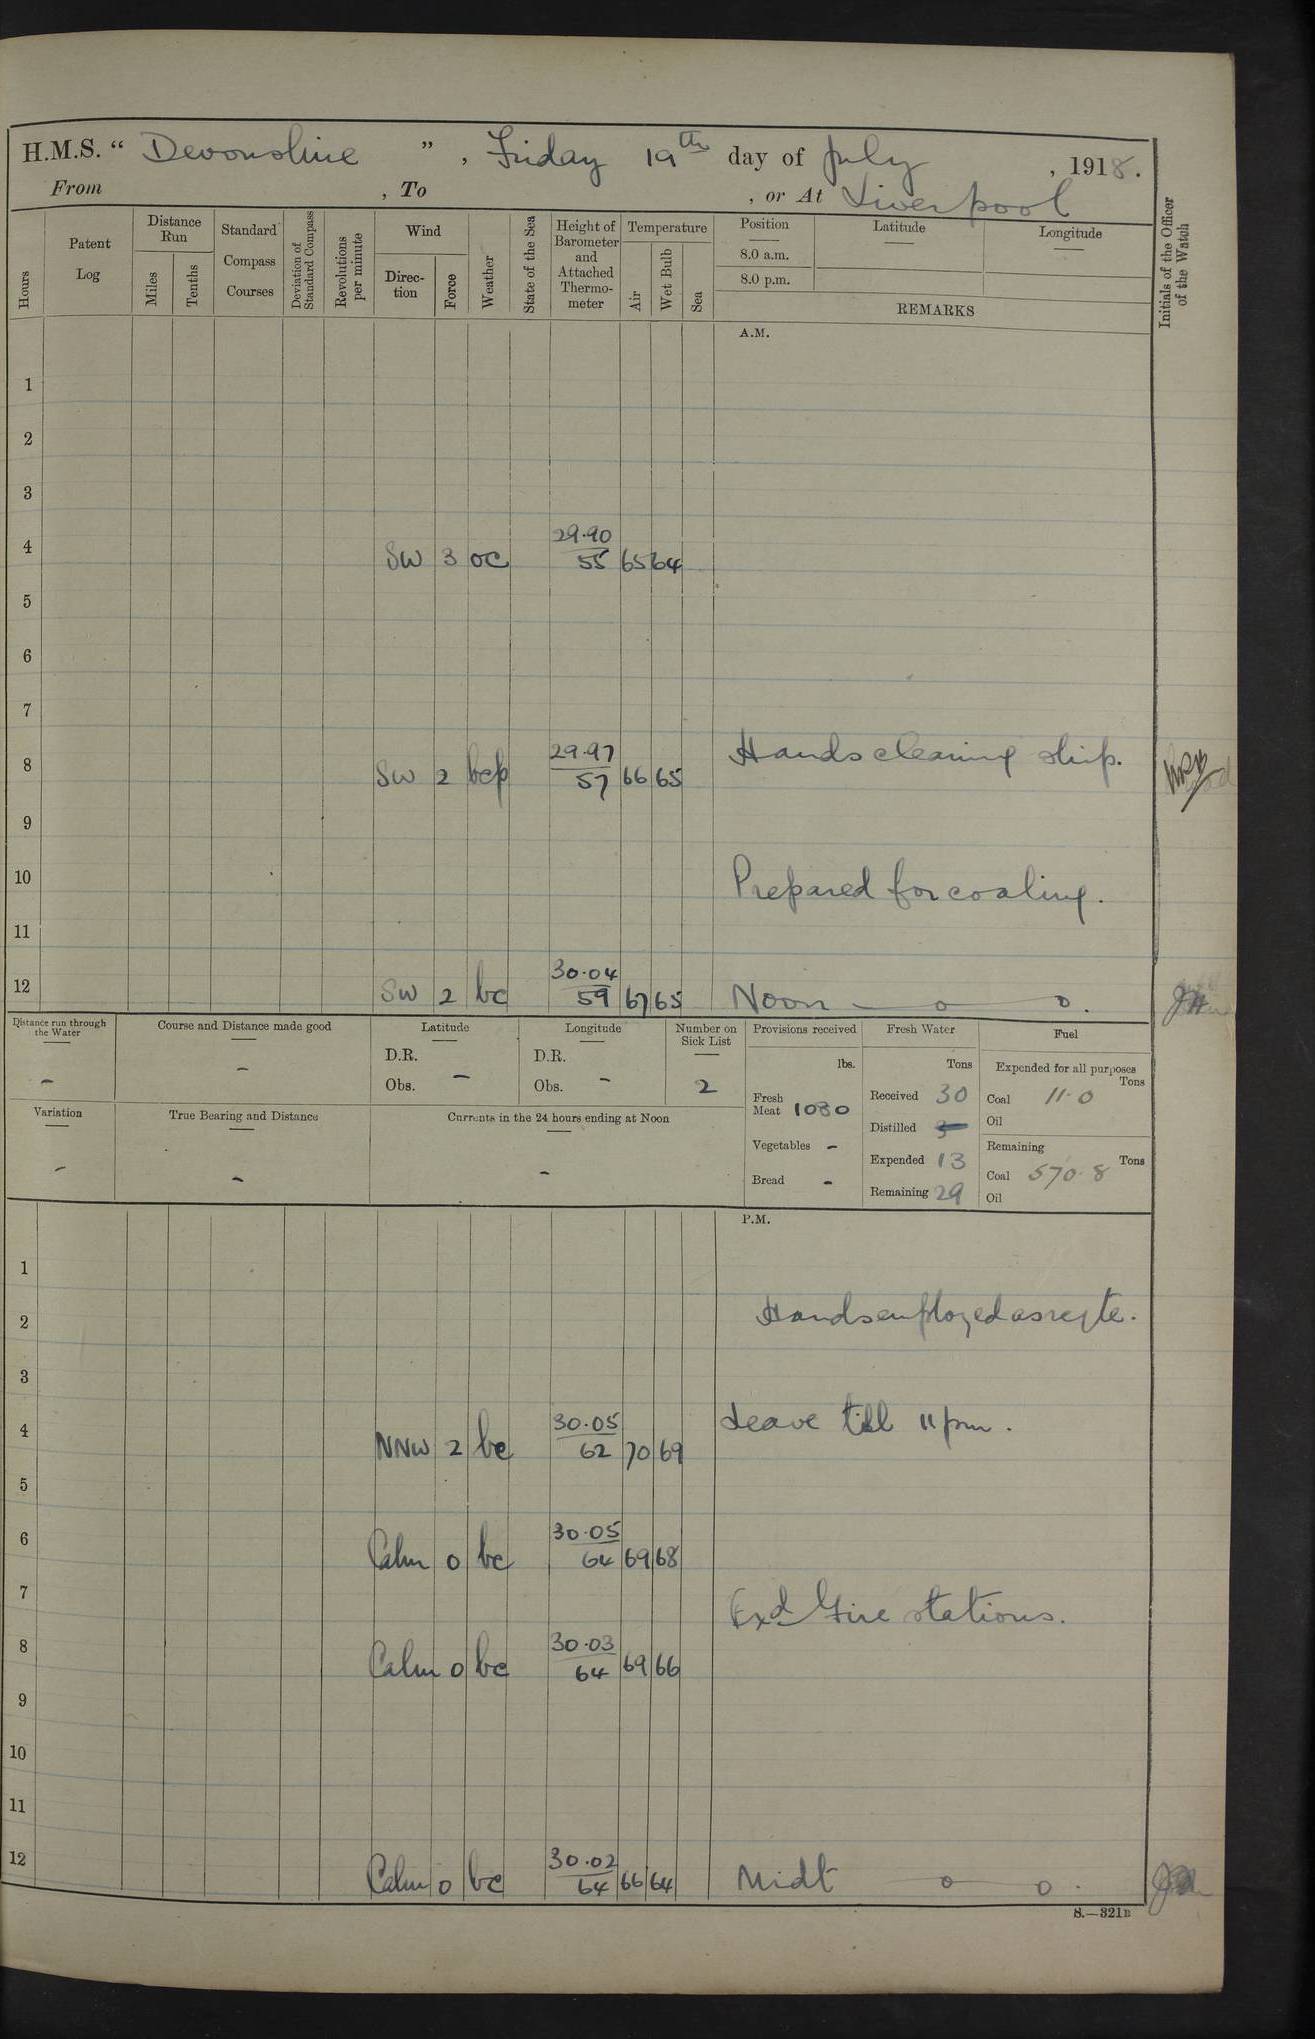 H.M.S. " Devonshire " , Friday 19th day of July , 1918.
From , To , or At Liverpool
Hours
Patent Log
Distance Run
Miles
Tenths
Standard Compass Courses
Deviation of Standard Compass
Revolutions per minute
Wind
Direc-tion
Force
Weather
State of the Sea
Height of Barometer and Attached Thermo-meter
Temperature
Air
Wet Bulb
Sea
Position
8.0 a.m.
8.0 p.m.
Latitude
Longitude
REMARKS
Initials of the Officer of the Watch
A.M.
1
2
3
4 SW 3 oc 29.90 55 65 64
5
6
7
8 SW 2 bcp 29.97 57 66 65 Hands cleaning ship.
9
10 Prepared for coaling.
11
12 SW 2 bc 30.04 59 67 65 Noon — o — o.
Distance run through the Water
-
Course and Distance made good
-
Latitude
D.R.
Obs. -
Longitude
D.R.
Obs. -
Number on Sick List
2
Provisions received
lbs.
Fresh Meat 1080
Vegetables -
Bread -
Fresh Water
Tons
Received 30
Distilled
Expended 13
Remaining 29
Fuel
Expended for all purposes
Tons
Coal 11.0
Oil
Remaining
Tons
Coal 570.8
Oil
Variation
-
True Bearing and Distance
-
Currents in the 24 hours ending at Noon
-
P.M.
1
2 Hands employed as reqte.
3
4 NNW 2 bc 30.05 62 70 69 Leave till 11 pm.
5
6 Calm 0 bc 30.05 64 69 68
7 Exd Fire stations.
8 Calm 0 bc 30.03 64 69 66
9
10
11
12 Calm 0 bc 30.02 64 66 64 Midt o o .
S.—321B